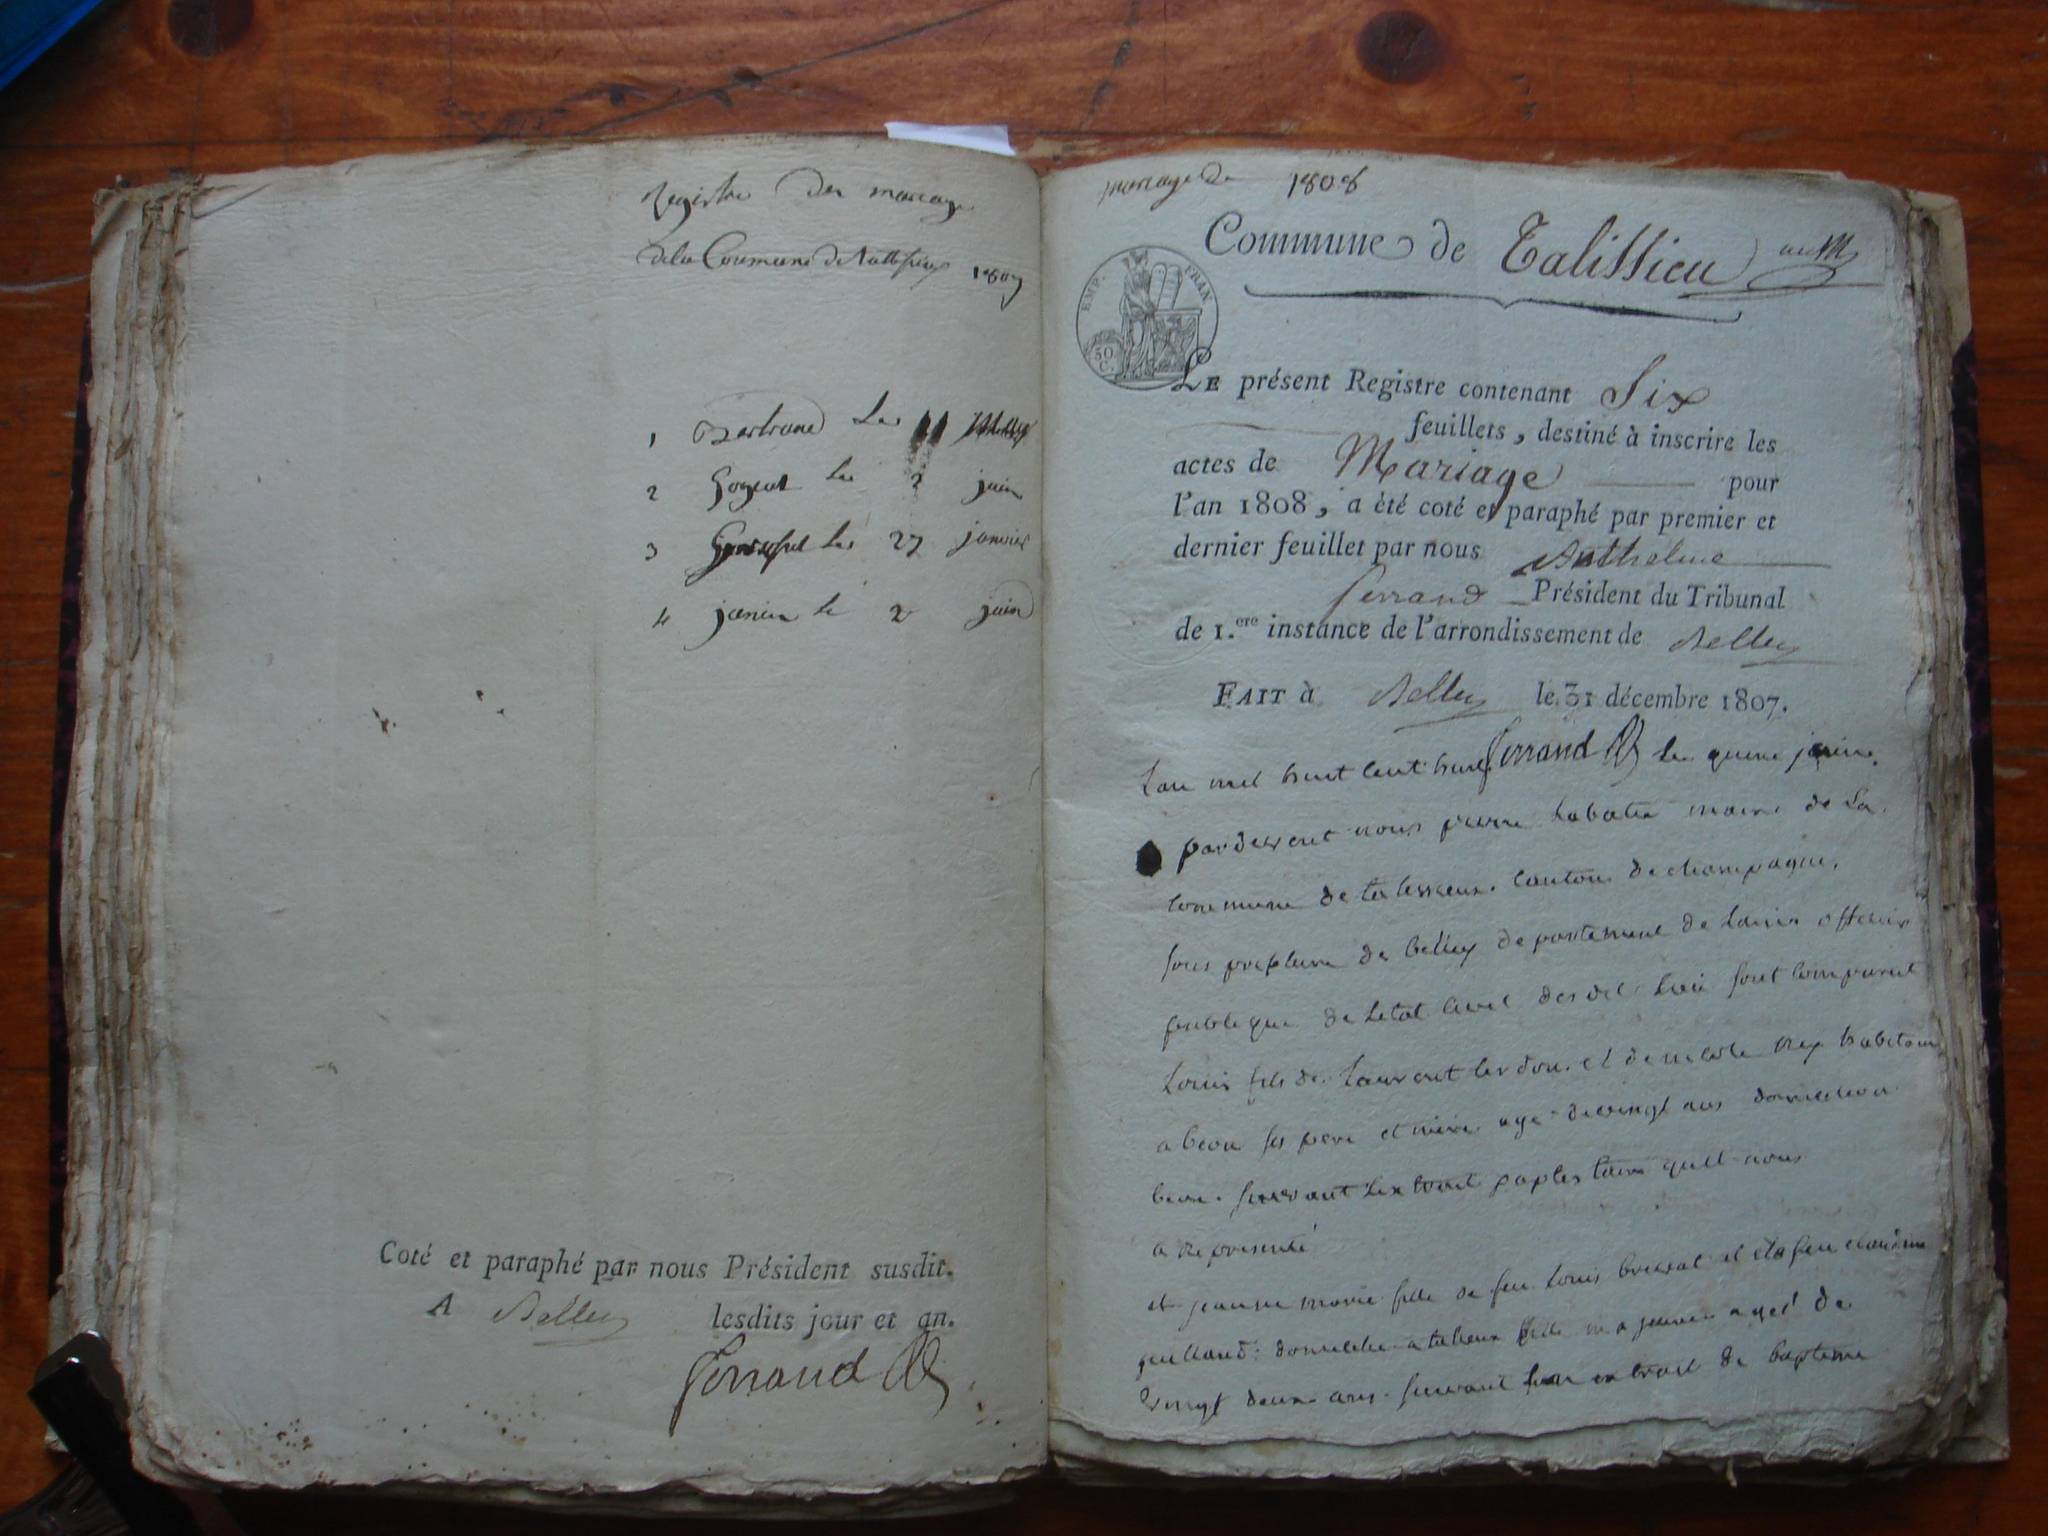 Registre des mariage
de la Commune de 1807
1 Bertrand Le 11
2 Goyeat le 2 juin
3 le 27 janvier
4 janin le 2 juin
Coté et paraphé par nous Président susdit.
A Belley lesdits jour et an.
Ferrand
mariage de 1808
Commune de Talissieu
EMP. FRAN
50 C.
LE présent Registre contenant Six
feuillets, destiné à inscrire les
actes de Mariage pour
l'an 1808, a été coté et paraphé par premier et
dernier feuillet par nous Anthelme
Ferrand Président du Tribunal
de 1.ere instance de l'arrondissement de Belley
FAIT à Belley le 31 décembre 1807.
Ferrand
Lan mil huit cent huit le
pardevent nous pierre Labatie maire de La
commune de talissieux canton de champagne
sous prefecture de belley departement de Lain officier
publique de Letat civil des dit Lieu sont comparut
Louis fils de Laurent cerdon et de nicole rey habitant
a beon ses pere et mere agé de vingt ans domicilié a
beon suivant qull nous
a representé
et jeanne marie fille de feu Louis brusat et feu claudine
guilland domiciliée a agé de
vingt deux ans suivant son extrait de bapteme